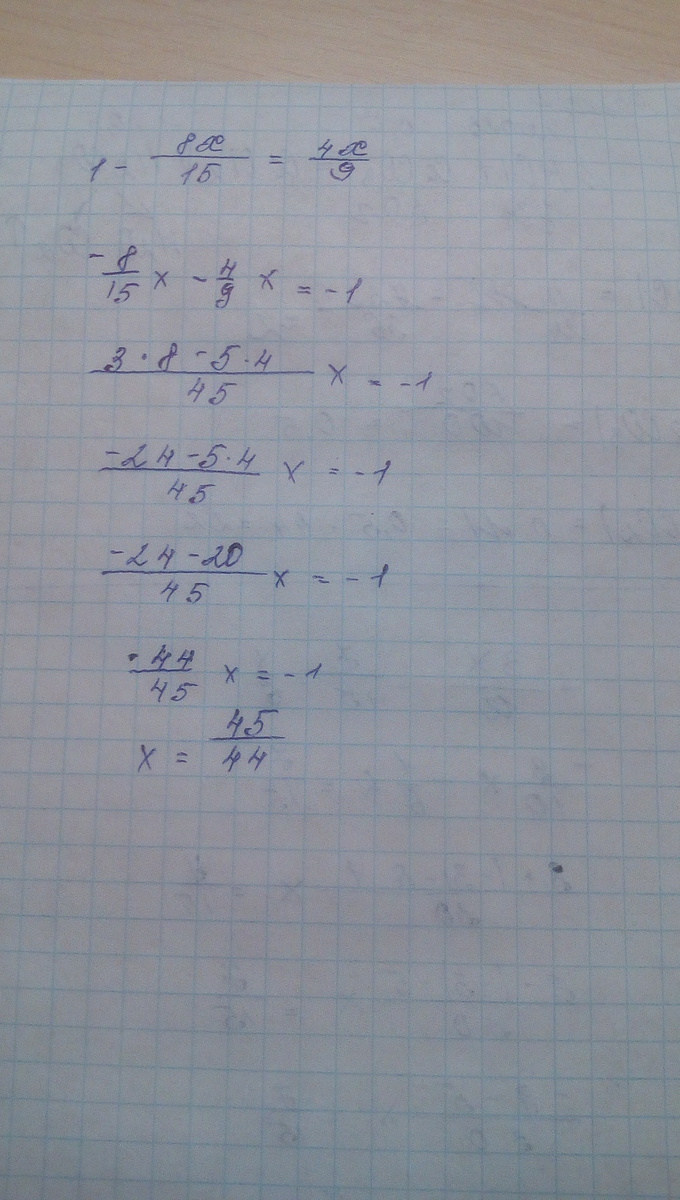 1 - 8x/15 = 4x/9
-8/15 x - 4/9 x = -1
3·8-5·4/45 x = -1
-24-5·4/45 x = -1
-24-20/45 x = -1
-44/45 x = -1
x = 45/44